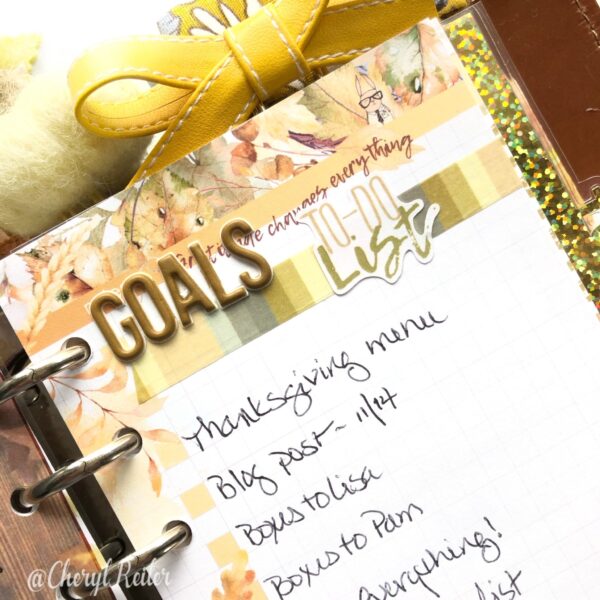 changes everything
GOALS
TO-DO
List
Thanksgiving menu
Blog post ~ 11/24
Boxes to Lisa
Boxes to Pam
everything!
list
@CherylReiter